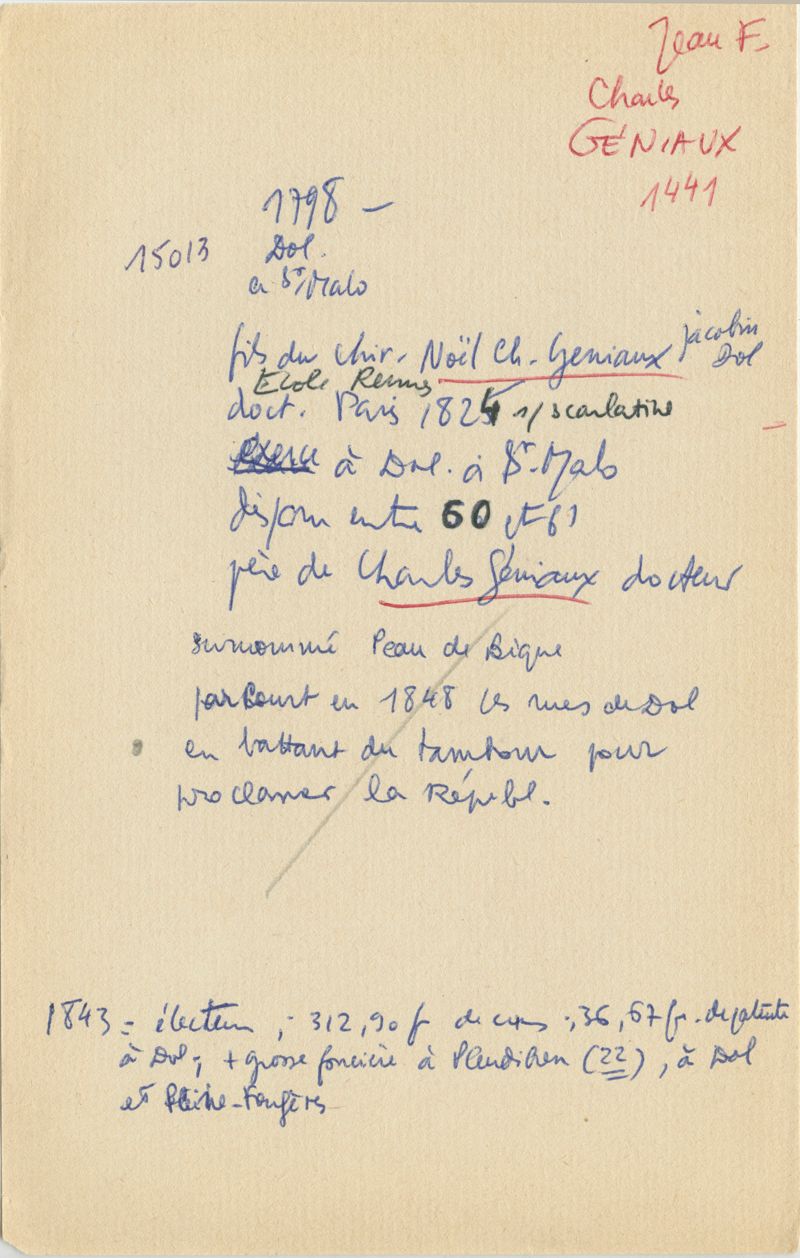 Jean F.
Charles
GÉNIAUX
1441
1798 –
15013 Dol.
a St Malo
fils du chir. Noël Ch. Geniaux jacobin Dol
Ecole Rennes
doct. Paris 1824 s/ scarlatine
exerce à Dol. à St-Malo
dispar entre 60 et 61
père de Charles Géniaux docteur
surnommé Peau de Bique
parcourt en 1848 les rues de Dol
en battant du tambour pour
proclamer la Républ.
1843 = électeur, - 312,90 fr de cens ; 36,67 fr. de patente
à Dol ; + grosse foncière à Pleudihen (22), à Dol
et Pleine-Fougères